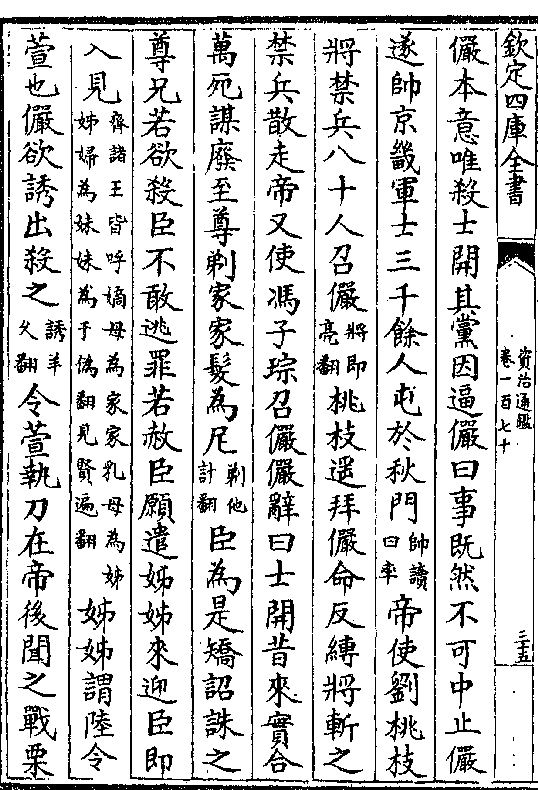 欽定四庫全書
資治通鑑
卷一百七十
三五
儼本意唯殺士開其黨因逼儼曰事既然不可中止儼
遂帥京畿軍士三千餘人屯於千秋門帥讀曰率帝使劉桃枝
將禁兵八十人召儼將即亮翻桃枝遥拜儼命反縛將斬之
禁兵散走帝又使馮子琮召儼儼辭曰士開昔來實合
萬死謀廢至尊剃家家髮為尼剃他計翻臣為是矯詔誅之
尊兄若欲殺臣不敢逃罪若赦臣願遣姊姊來迎臣即
入見齊諸王皆呼嫡母為家家乳母為姊姊婦為妹妹為于偽翻見賢遍翻姊姊謂陸令
萱也儼欲誘出殺之誘羊久翻令萱執刀在帝後聞之戰栗